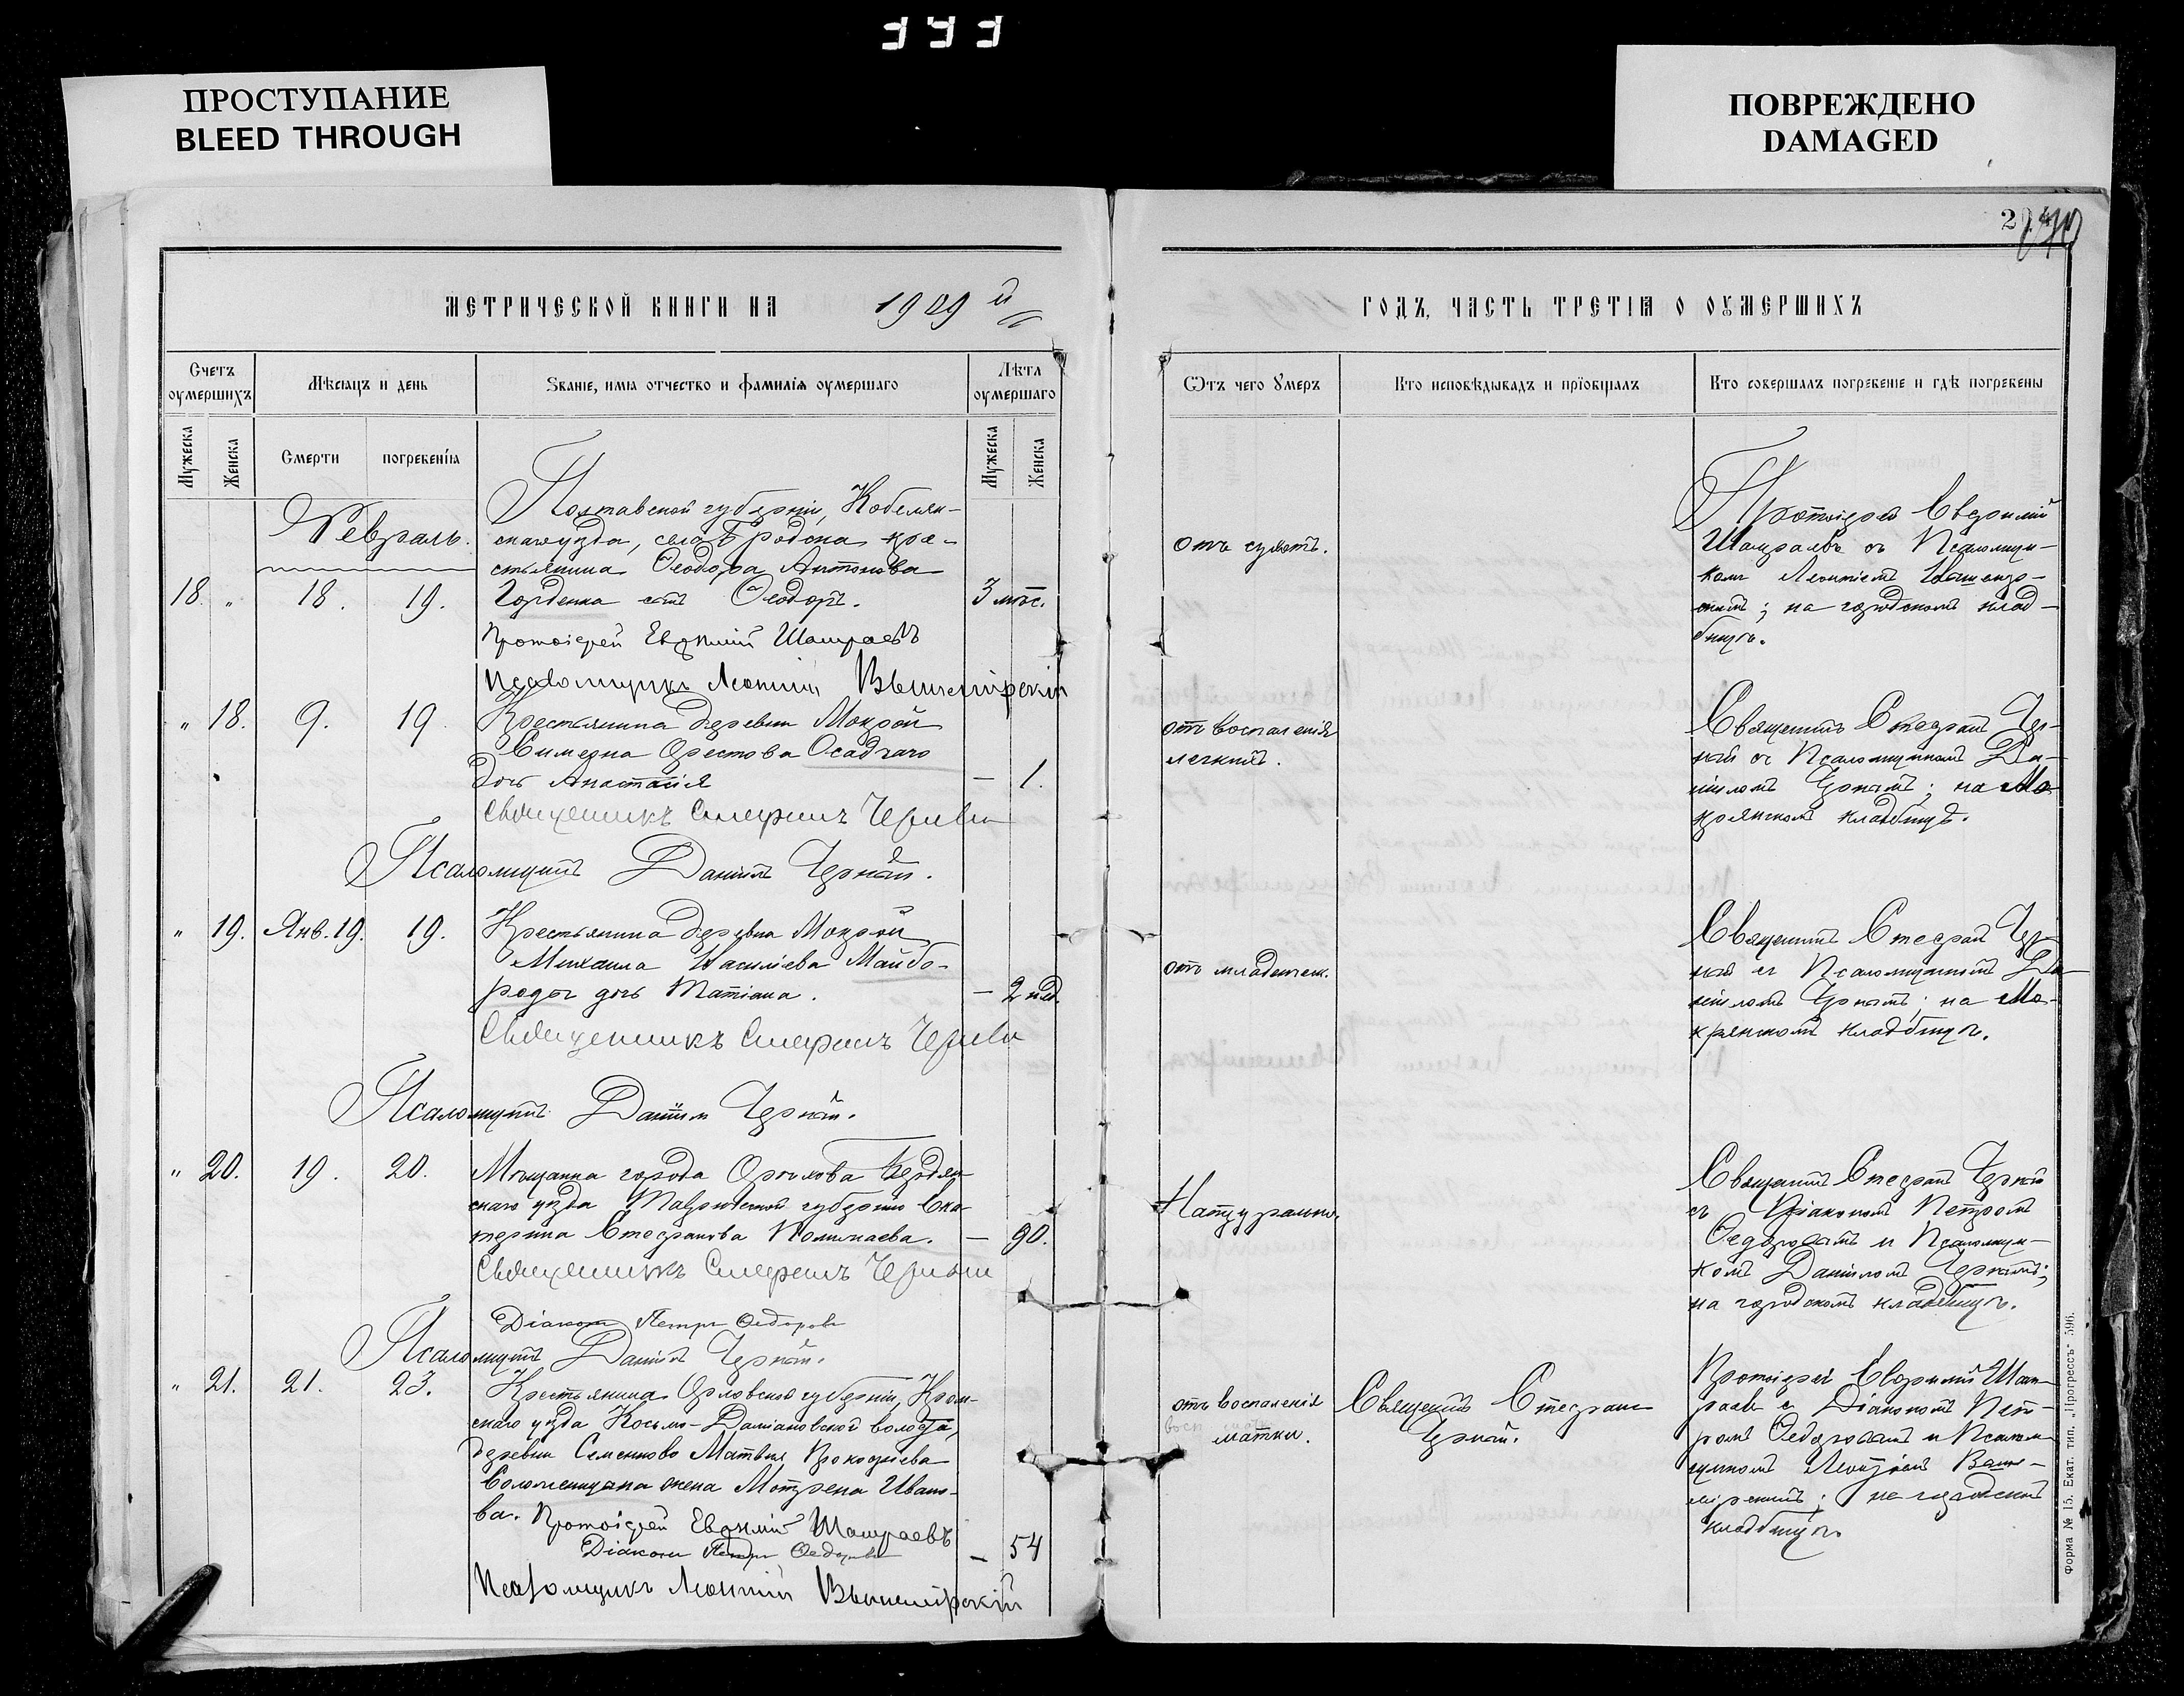 333
ПРОСТУПАНИЕ
BLEED THROUGH
ПОВРЕЖДЕНО
DAMAGED
МЕТРИЧЕСКОЙ КНИГИ НА 1909 й
ГОДЪ, ЧАСТЬ ТРЕТІѦ О ОУМЕРШИХЪ
Счетъ оумершихъ
Мѣсѧцъ и день
Званіе, имѧ отчество и фамиліѧ оумершаго
Лѣта оумершаго
Ѿтъ чего Умеръ
Кто исповѣдывалъ и прїобщалъ
Кто совершалъ погребеніе и гдѣ погребены
Мужеска
Женска
Смерти
погребеніѧ
Мужеска
Женска
Февраль.
Полтавской губерніи, Кобеляк-
скаго уѣзда, села Бродска кре-
стьянина Ѳеодора Антонова
18. " 18. 19. Горденка сынъ Ѳеодоръ. 3 мѣс.
Протоіерей Евѳимій Шамраевъ
Псаломщикъ Леонтій Вышемірскій
отъ сухотъ.
Протоіерей Евѳимій
Шамраевъ съ Псаломщи-
комъ Леонтіемъ Вышемір-
скимъ; на городскомъ клад-
бищѣ.
" 18. 9. 19. Крестьянина деревни Мокрой
Симеона Орестова Осадчаго
дочь Анастасія — 1.
Священникъ Стефанъ Черный
Псаломщикъ Даніилъ Черный.
отъ воспаленія
легкихъ.
Священникъ Стефанъ Чер-
ный съ Псаломщикомъ Да-
ніиломъ Чернымъ; на Мо-
крянскомъ кладбищѣ.
" 19. Янв. 19. 19. Крестьянина деревни Мокрой
Михаила Васильева Майбо-
роды дочь Татіана. — 2 нед.
Священникъ Стефанъ Черный
Псаломщикъ Даніилъ Черный.
отъ младенческ.
Священникъ Стефанъ Чер-
ный съ Псаломщикомъ Да-
ніиломъ Чернымъ; на Мо-
крянскомъ кладбищѣ.
" 20. 19. 20. Мѣщанка города Орѣхова Бердян-
скаго уѣзда Таврической губерніи Ека-
терина Стефанова — 90.
Священникъ Стефанъ Черный
Діаконъ Петръ Ѳедоровъ
Псаломщикъ Даніилъ Черный.
Натурально.
Священникъ Стефанъ Черный
съ Діакономъ Петромъ
Ѳедоровымъ и Псаломщи-
комъ Даніиломъ Чернымъ;
на городскомъ кладбищѣ.
" 21. 21. 23. Крестьянина Орловской губерніи, Кром-
скаго уѣзда Косьмо-Даміановской волости,
деревни Семенково Матвѣя Прокофіева
жена Мотрена Ивано-
ва. Протоіерей Евѳимій Шамраевъ
Діаконъ Петръ Ѳедоровъ — 54
Псаломщикъ Леонтій Вышемірскій
отъ воспаленія
матки.
Священникъ Стефанъ
Черный.
Протоіерей Евѳимій Шам-
раевъ съ Діакономъ Пет-
ромъ Ѳедоровымъ и Псалом-
щикомъ Леонтіемъ Выше-
мірскимъ; на городскомъ
кладбищѣ.
Форма № 15. Екат. тип. „Прогрессъ" 596.